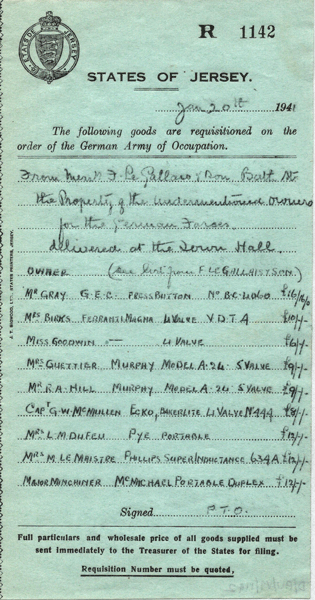 STATES OF JERSEY
R 1142
STATES OF JERSEY.
Jan 20th 1941
The following goods are requisitioned on the
order of the German Army of Occupation.
From Messrs F. Le Gallais & Son Bath St
the Property of the undermentioned owners
for the German Forces
delivered at the Town Hall.
OWNER (See list from F LE GALLAIS & SON)
Mr GRAY G.E.C. PRESS BUTTON No BC 4060 £16/16/0
Mrs BIRKS FERRANTI MAGNA 4 VALVE V D T A £10/-/-
MISS GOODWIN — 4 VALVE £6/-/-
Mrs GUETTIER MURPHY MODEL A-24 5 VALVE £9/-/-
Mr R.A. HILL MURPHY MODEL A-24 5 VALVE £9/-/-
CAPT G.W. McMULLEN EKO, BAKERLITE 4 VALVE No 444 £8/-/-
Mrs L.M DUFEU PYE PORTABLE £12/-/-
Mrs M LE MAISTRE PHILLIPS SUPER INDUCTANCE 634A £12/-/-
MAJOR MINCHINER McMICHAEL PORTABLE DUPLEX £12/-/-
Signed P.T.O.
Full particulars and wholesale price of all goods supplied must be
sent immediately to the Treasurer of the States for filing.
Requisition Number must be quoted,